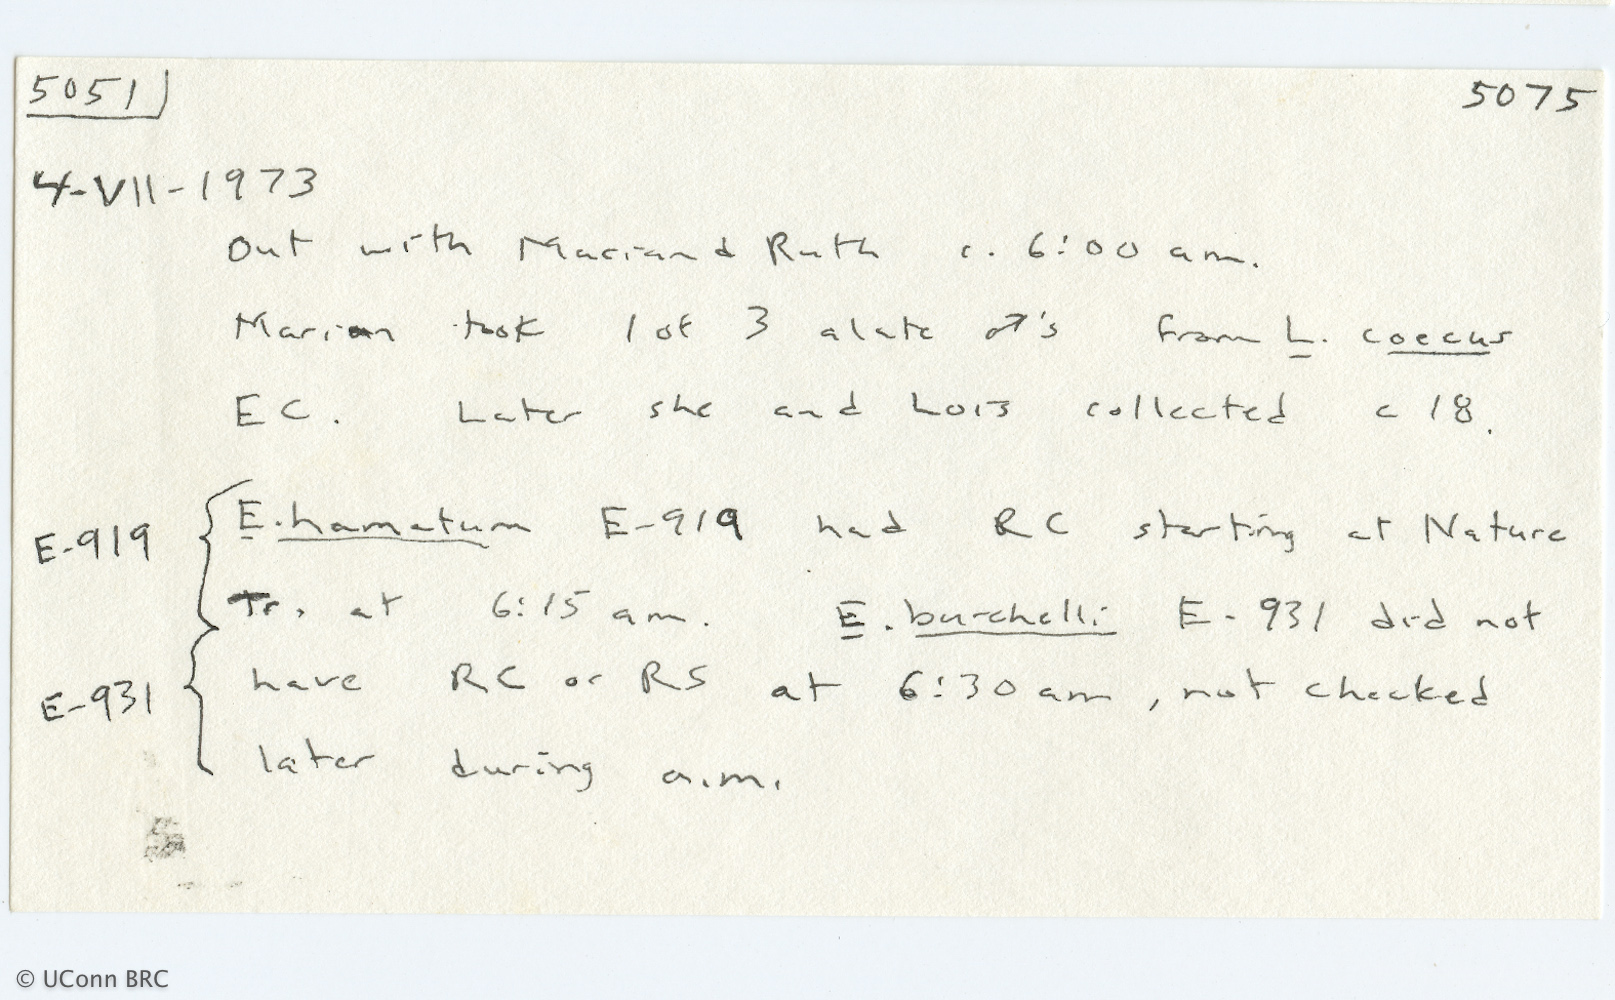 5051 5075
4-VII-1973
Out with Marian d Ruth c. 6:00 am.
Marian took 1 of 3 alate ♂'s from L. coecus
EC. Later she and Lois collected c 18.
E-919 E. hamatum E-919 had RC starting at Nature
Tr. at 6:15 am. E. burchelli E-931 did not
E-931 have RC or RS at 6:30 am, not checked
later during a.m.
© UConn BRC